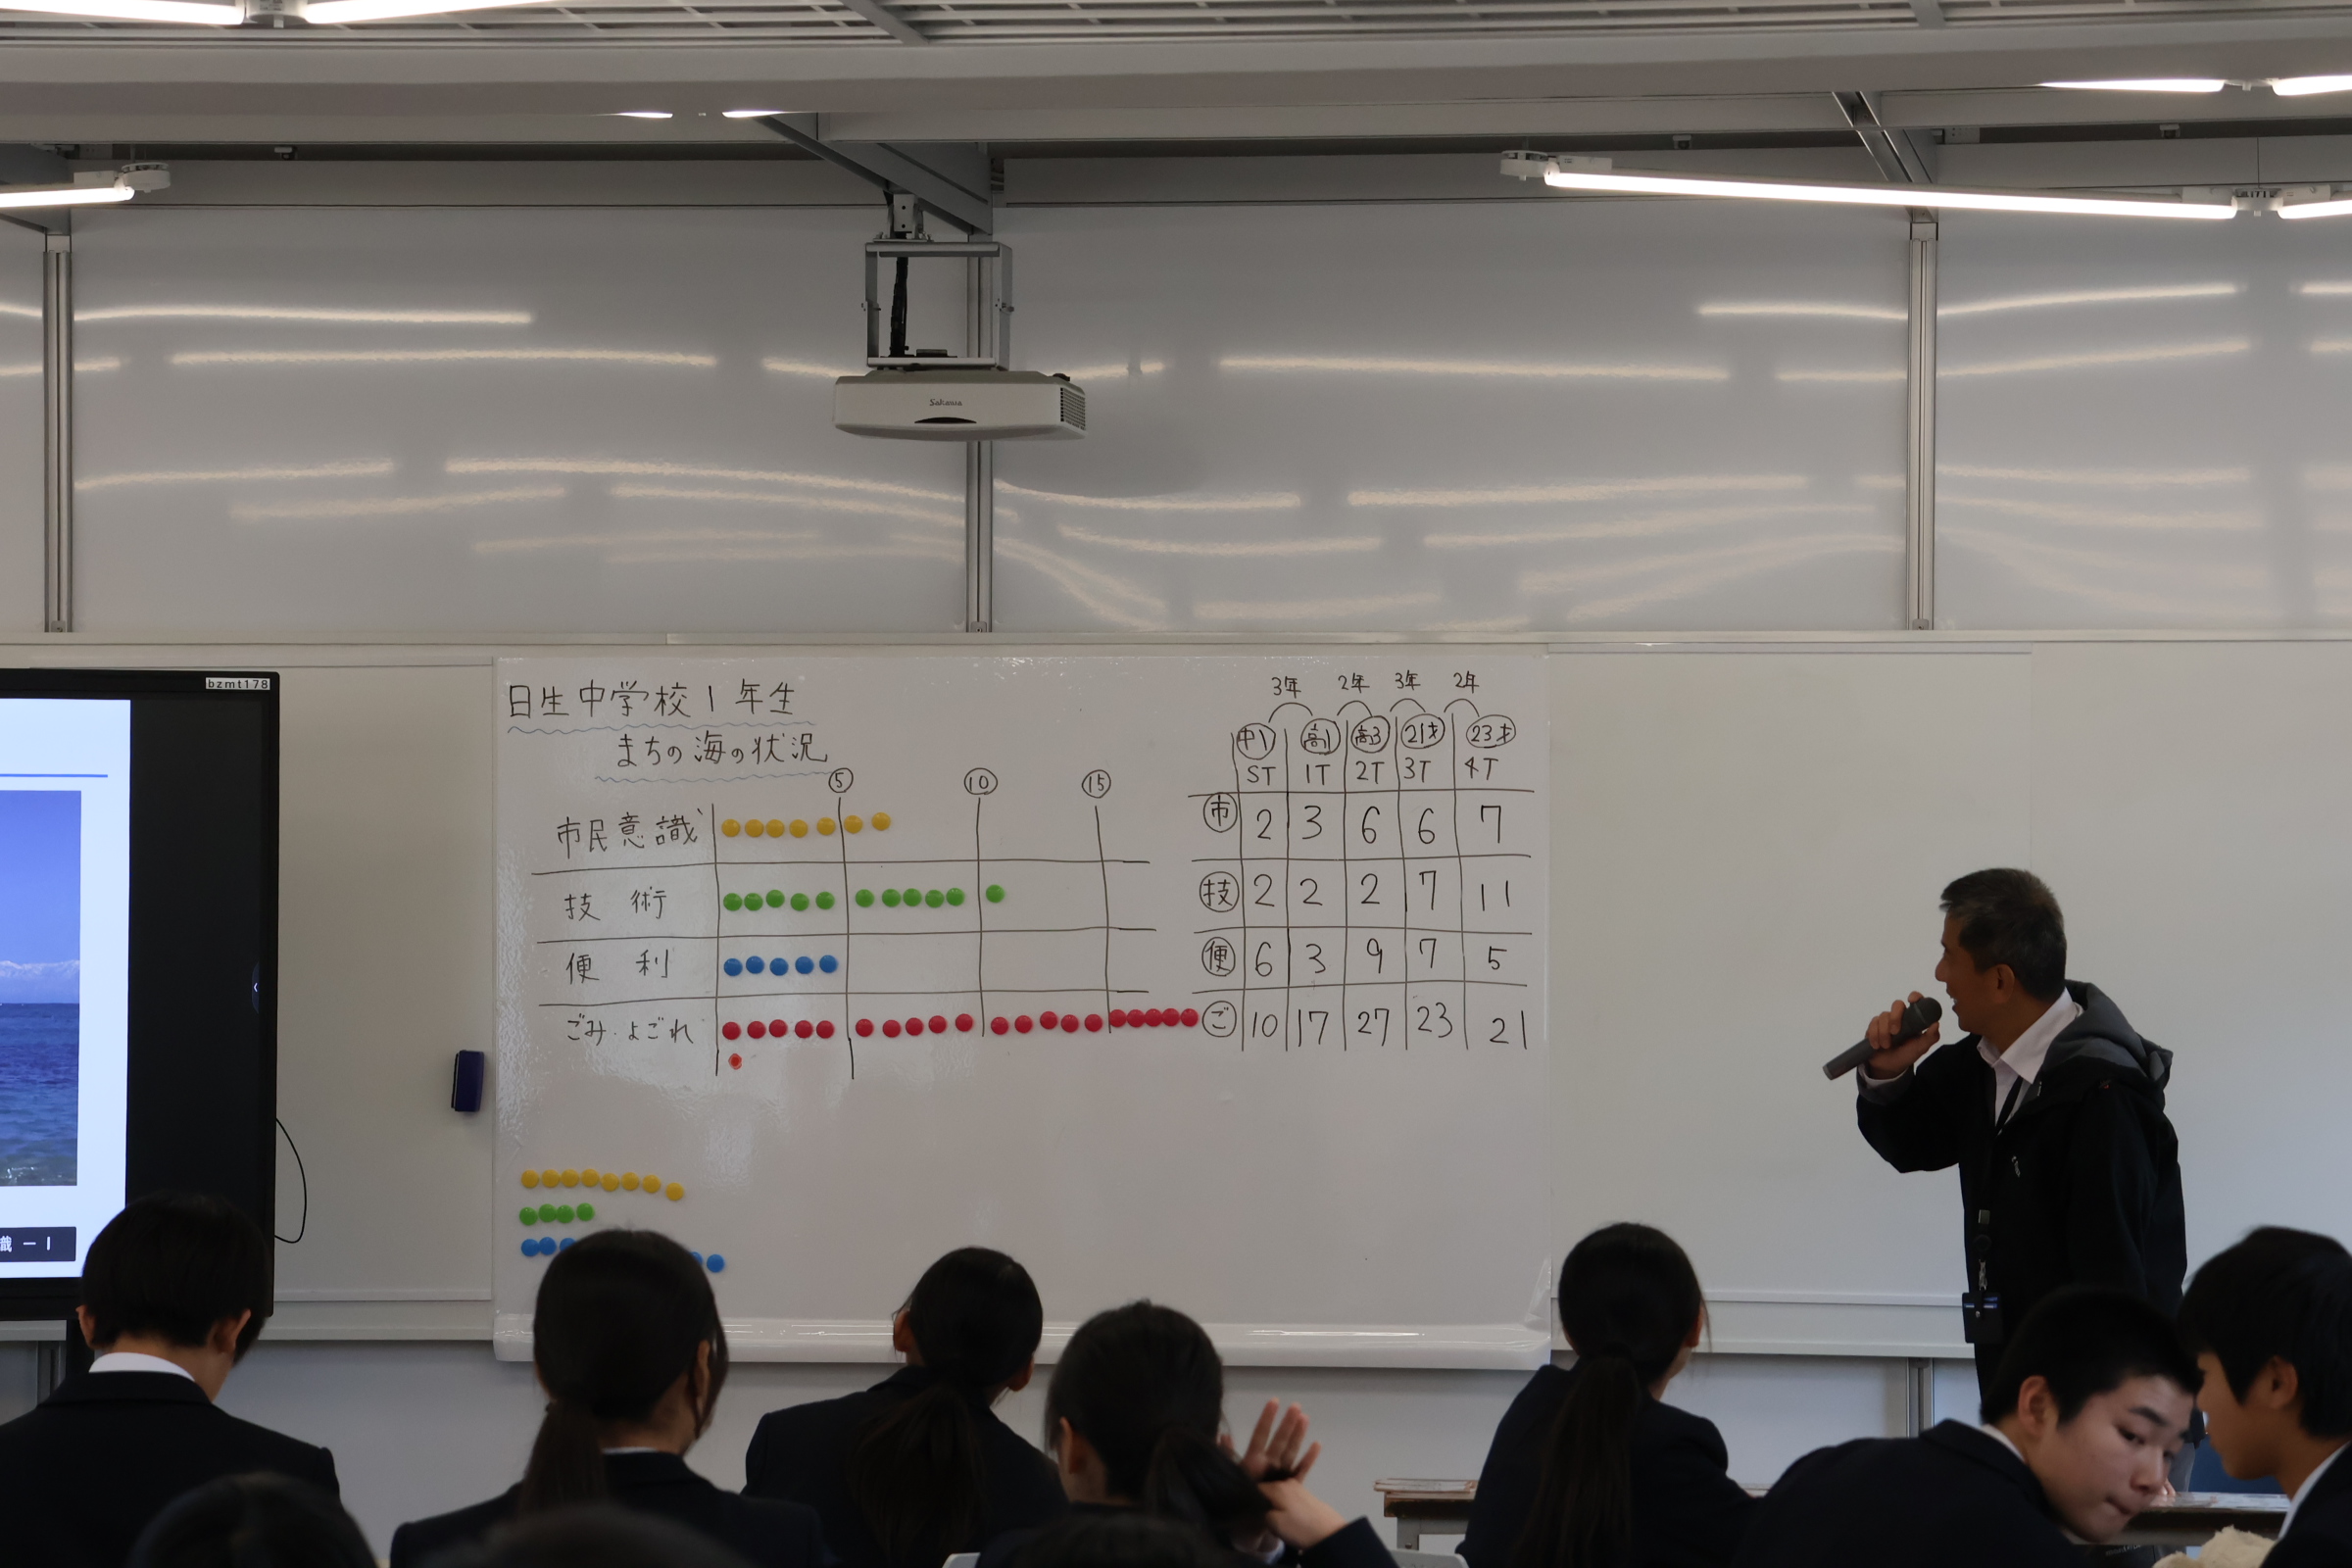 bzmt178
Sakawa
日生中学校1年生
まちの海の状況
⑤ ⑩ ⑮
市民意識
技術
便利
ごみ・よごれ
3年 2年 3年 2年
中1 高1 高3 21才 23才
ST 1T 2T 3T 4T
市 2 3 6 6 7
技 2 2 2 7 11
便 6 3 9 7 5
ご 10 17 27 23 21
識 － 1